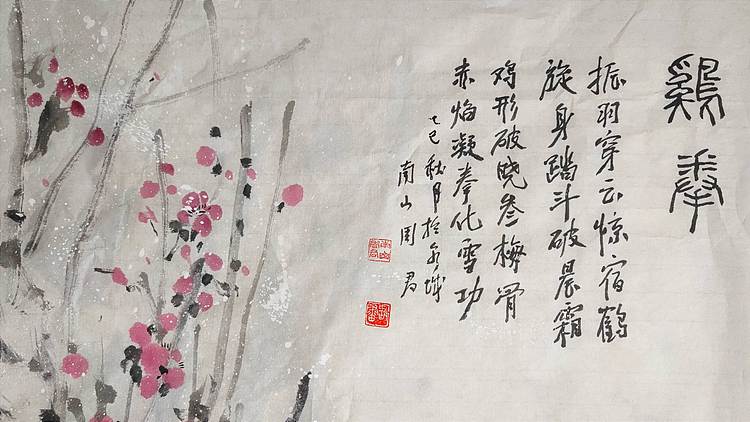 鷄拳
振羽穿云惊宿鹤
旋身踏斗破晨霜
鸡形破晓叁梅骨
赤焰凝拳化雪功
乙巳秋月於泉城
南山周君